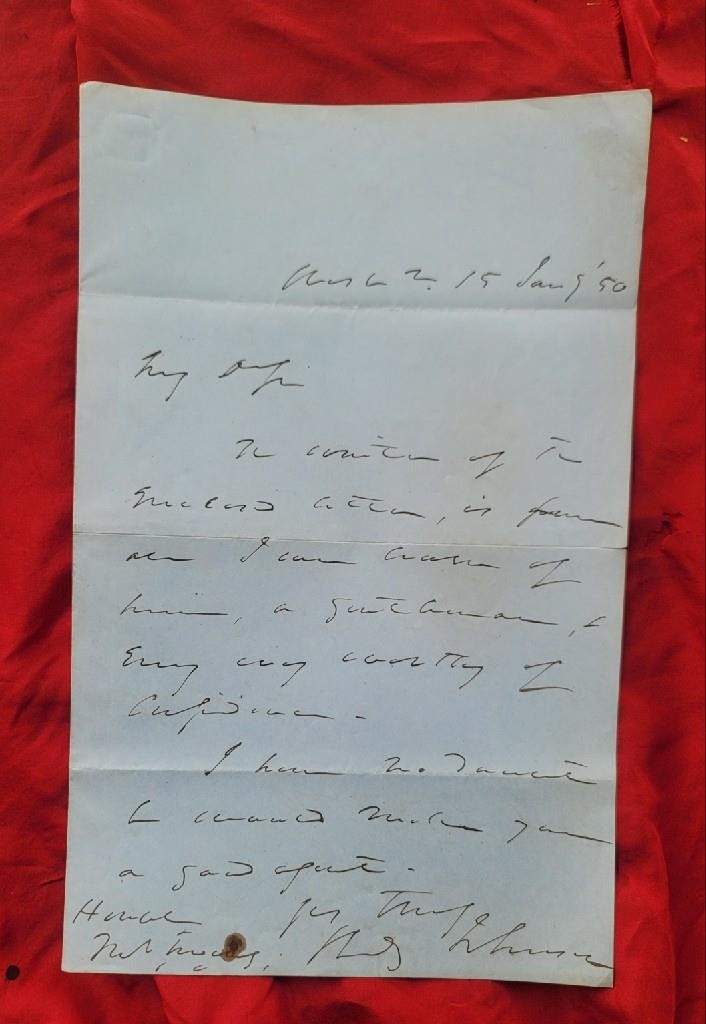 15 Jany '50
My Dr Sir
The writer of the
Enclosed letter, is from
all I can learn of
him, a gentleman, &
Every way worthy of
Confidence -
I have no doubt
he would make you
a good agent -
Yrs Truly
Johnson